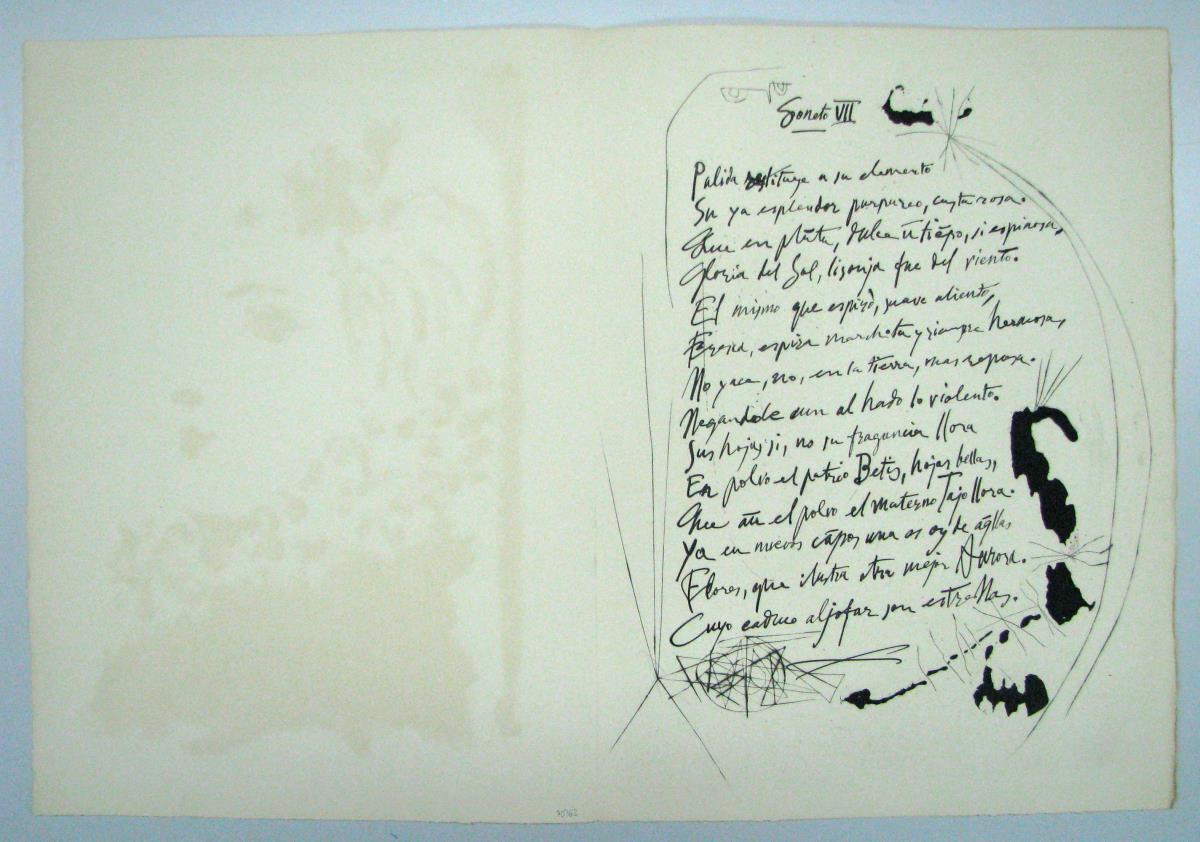 Soneto VII
Palida restituye a su elemento
Su ya esplendor purpureo, casta rosa.
Que en plāta, dulce ūtiēpo, si espinosa,
Gloria del Sol, lisonja fue del viento.
El mismo que espiró, suave aliento,
Fresca, espira marchita y siempre hermosa,
No yace, no, en la tierra, mas reposa.
Negandole aun al hado lo violento.
Sus hojas si, no su fragancia llora
En polvo el patrio Betis, hojas bellas,
Que aū el polvo el materno Tajo llora.
Ya en nuevos cāpos una es oy de aq̄llas
Flores, que ilustra otra mejor Aurora.
Cuyo caduco aljofar son estrellas.